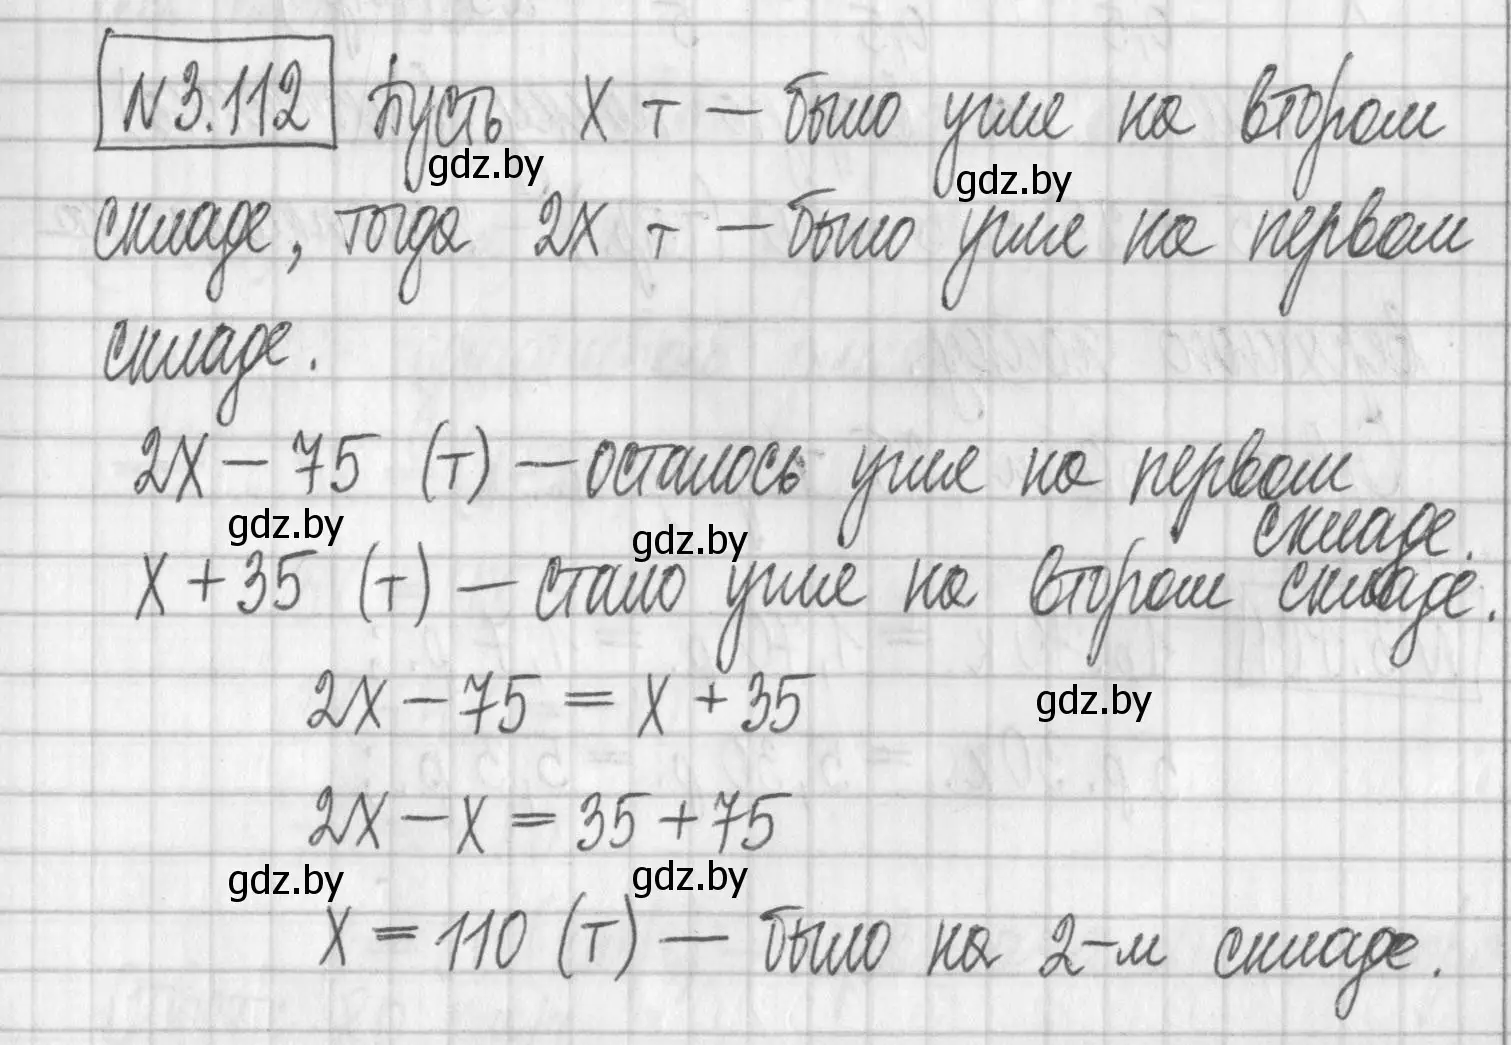 №3.112 Пусть x т – было угля на втором
gdz.by gdz.by
складе, тогда 2x т – было угля на первом
складе.
2x – 75 (т) – осталось угля на первом
складе.
gdz.by gdz.by
x + 35 (т) – стало угля на втором складе.
2x – 75 = x + 35
gdz.by
2x – x = 35 + 75
gdz.by gdz.by
x = 110 (т) – было на 2-м складе.